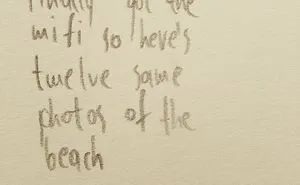 finally got the
mifi so here's
twelve same
photos of the
beach